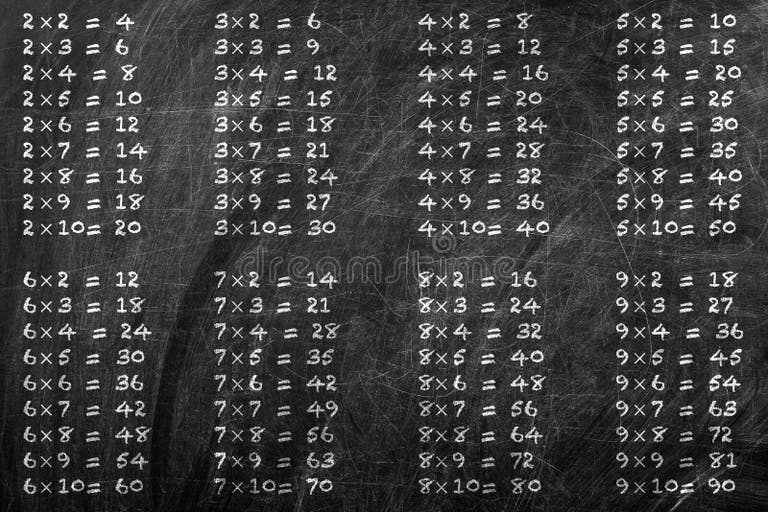 2×2 = 4
2×3 = 6
2×4 = 8
2×5 = 10
2×6 = 12
2×7 = 14
2×8 = 16
2×9 = 18
2×10= 20
3×2 = 6
3×3 = 9
3×4 = 12
3×5 = 15
3×6 = 18
3×7 = 21
3×8 = 24
3×9 = 27
3×10= 30
4×2 = 8
4×3 = 12
4×4 = 16
4×5 = 20
4×6 = 24
4×7 = 28
4×8 = 32
4×9 = 36
4×10= 40
5×2 = 10
5×3 = 15
5×4 = 20
5×5 = 25
5×6 = 30
5×7 = 35
5×8 = 40
5×9 = 45
5×10= 50
dreamstime
6×2 = 12
6×3 = 18
6×4 = 24
6×5 = 30
6×6 = 36
6×7 = 42
6×8 = 48
6×9 = 54
6×10= 60
7×2 = 14
7×3 = 21
7×4 = 28
7×5 = 35
7×6 = 42
7×7 = 49
7×8 = 56
7×9 = 63
7×10= 70
8×2 = 16
8×3 = 24
8×4 = 32
8×5 = 40
8×6 = 48
8×7 = 56
8×8 = 64
8×9 = 72
8×10= 80
9×2 = 18
9×3 = 27
9×4 = 36
9×5 = 45
9×6 = 54
9×7 = 63
9×8 = 72
9×9 = 81
9×10= 90